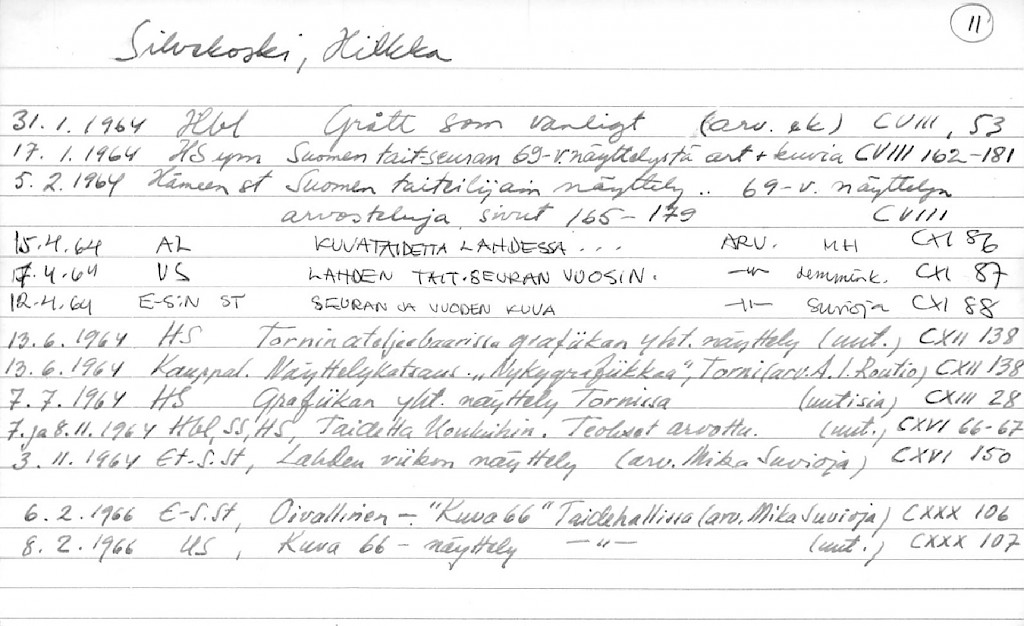 11
Silvekoski, Hilkka
31.1.1964 Hbl Grått som vanligt (arv. ek) CVIII, 53
17.1.1964 HS ym Suomen tait-seuran 69-v.näyttelystä art + kuvia CVIII 162-181
5.2.1964 Hämeen st Suomen taiteilijain näyttely.. 69-v. näyttelyn
arvosteluja sivut 165-179 CVIII
15.4.64 AL KUVATAIDETTA LAHDESSA... ARV. MH CXI 86
17.4.64 US LAHDEN TAIT.SEURAN VUOSIN. -"- Lemmink. CXI 87
12.4.64 E-S:N ST SEURAN JA VUODEN KUVA -"- Suvioja CXI 88
13.6.1964 HS Torninateljeebaarissa grafiikan yht. näyttely (uut.) CXII 138
13.6.1964 Kauppal. Näyttelykatsaus. "Nykygrafiikkaa", Torni (arv. A.I. Routio) CXII 138
7.7.1964 HS Grafiikan yht. näyttely Tornissa (uutisia) CXIII 28
7. ja 8.11.1964 Hbl, SS, HS, Taidetta Kouluihin. Teokset arvottu. (uut.) CXVI 66-67
3.11.1964 Et-S.St, Lahden viikon näyttely (arv. Mika Suvioja) CXVI 150
6.2.1966 E-S.St, Oivallinen - "Kuva 66" Taidehallissa (arv. Mika Suvioja) CXXX 106
8.2.1966 US, Kuva 66 - näyttely -"- (uut.) CXXX 107